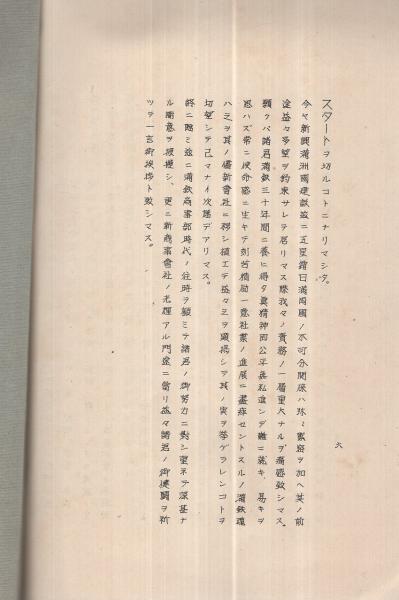 スタートヲ切ルコトニナリマシタ。
今ヤ新興満洲國建設茲ニ五星霜日満両國ノ不可分関係ハ殊ニ緊密ヲ加ヘ其ノ前
途益々多望ヲ約束サレテ居リマス際我々ノ責務ノ一層重大ナルヲ痛感致シマス
願クバ諸君満鉄三十年間ニ養ヒ得タ真精神即公平無私進ンデ難ニ就キ、易キヲ
思ハズ常ニ使命感ニ生キテ刻苦精励一意社業ノ進展ニ盡瘁セントスルノ満鉄魂
ハ之ヲ其ノ儘新會社ニ移シ植エテ益々之ヲ顕揚シテ其ノ実ヲ挙ゲラレンコトヲ
切望シテ已マナイ次第デアリマス。
終ニ臨ミ茲ニ満鉄商事部時代ノ往時ヲ顧ミテ諸君ノ御努力ニ対シ重ネテ深甚ナ
ル謝意ヲ披瀝シ、更ニ新商事會社ノ光輝アル門途ニ當リ益々諸君ノ御健闘ヲ祈
ツテ一言御挨拶ト致シマス。
六